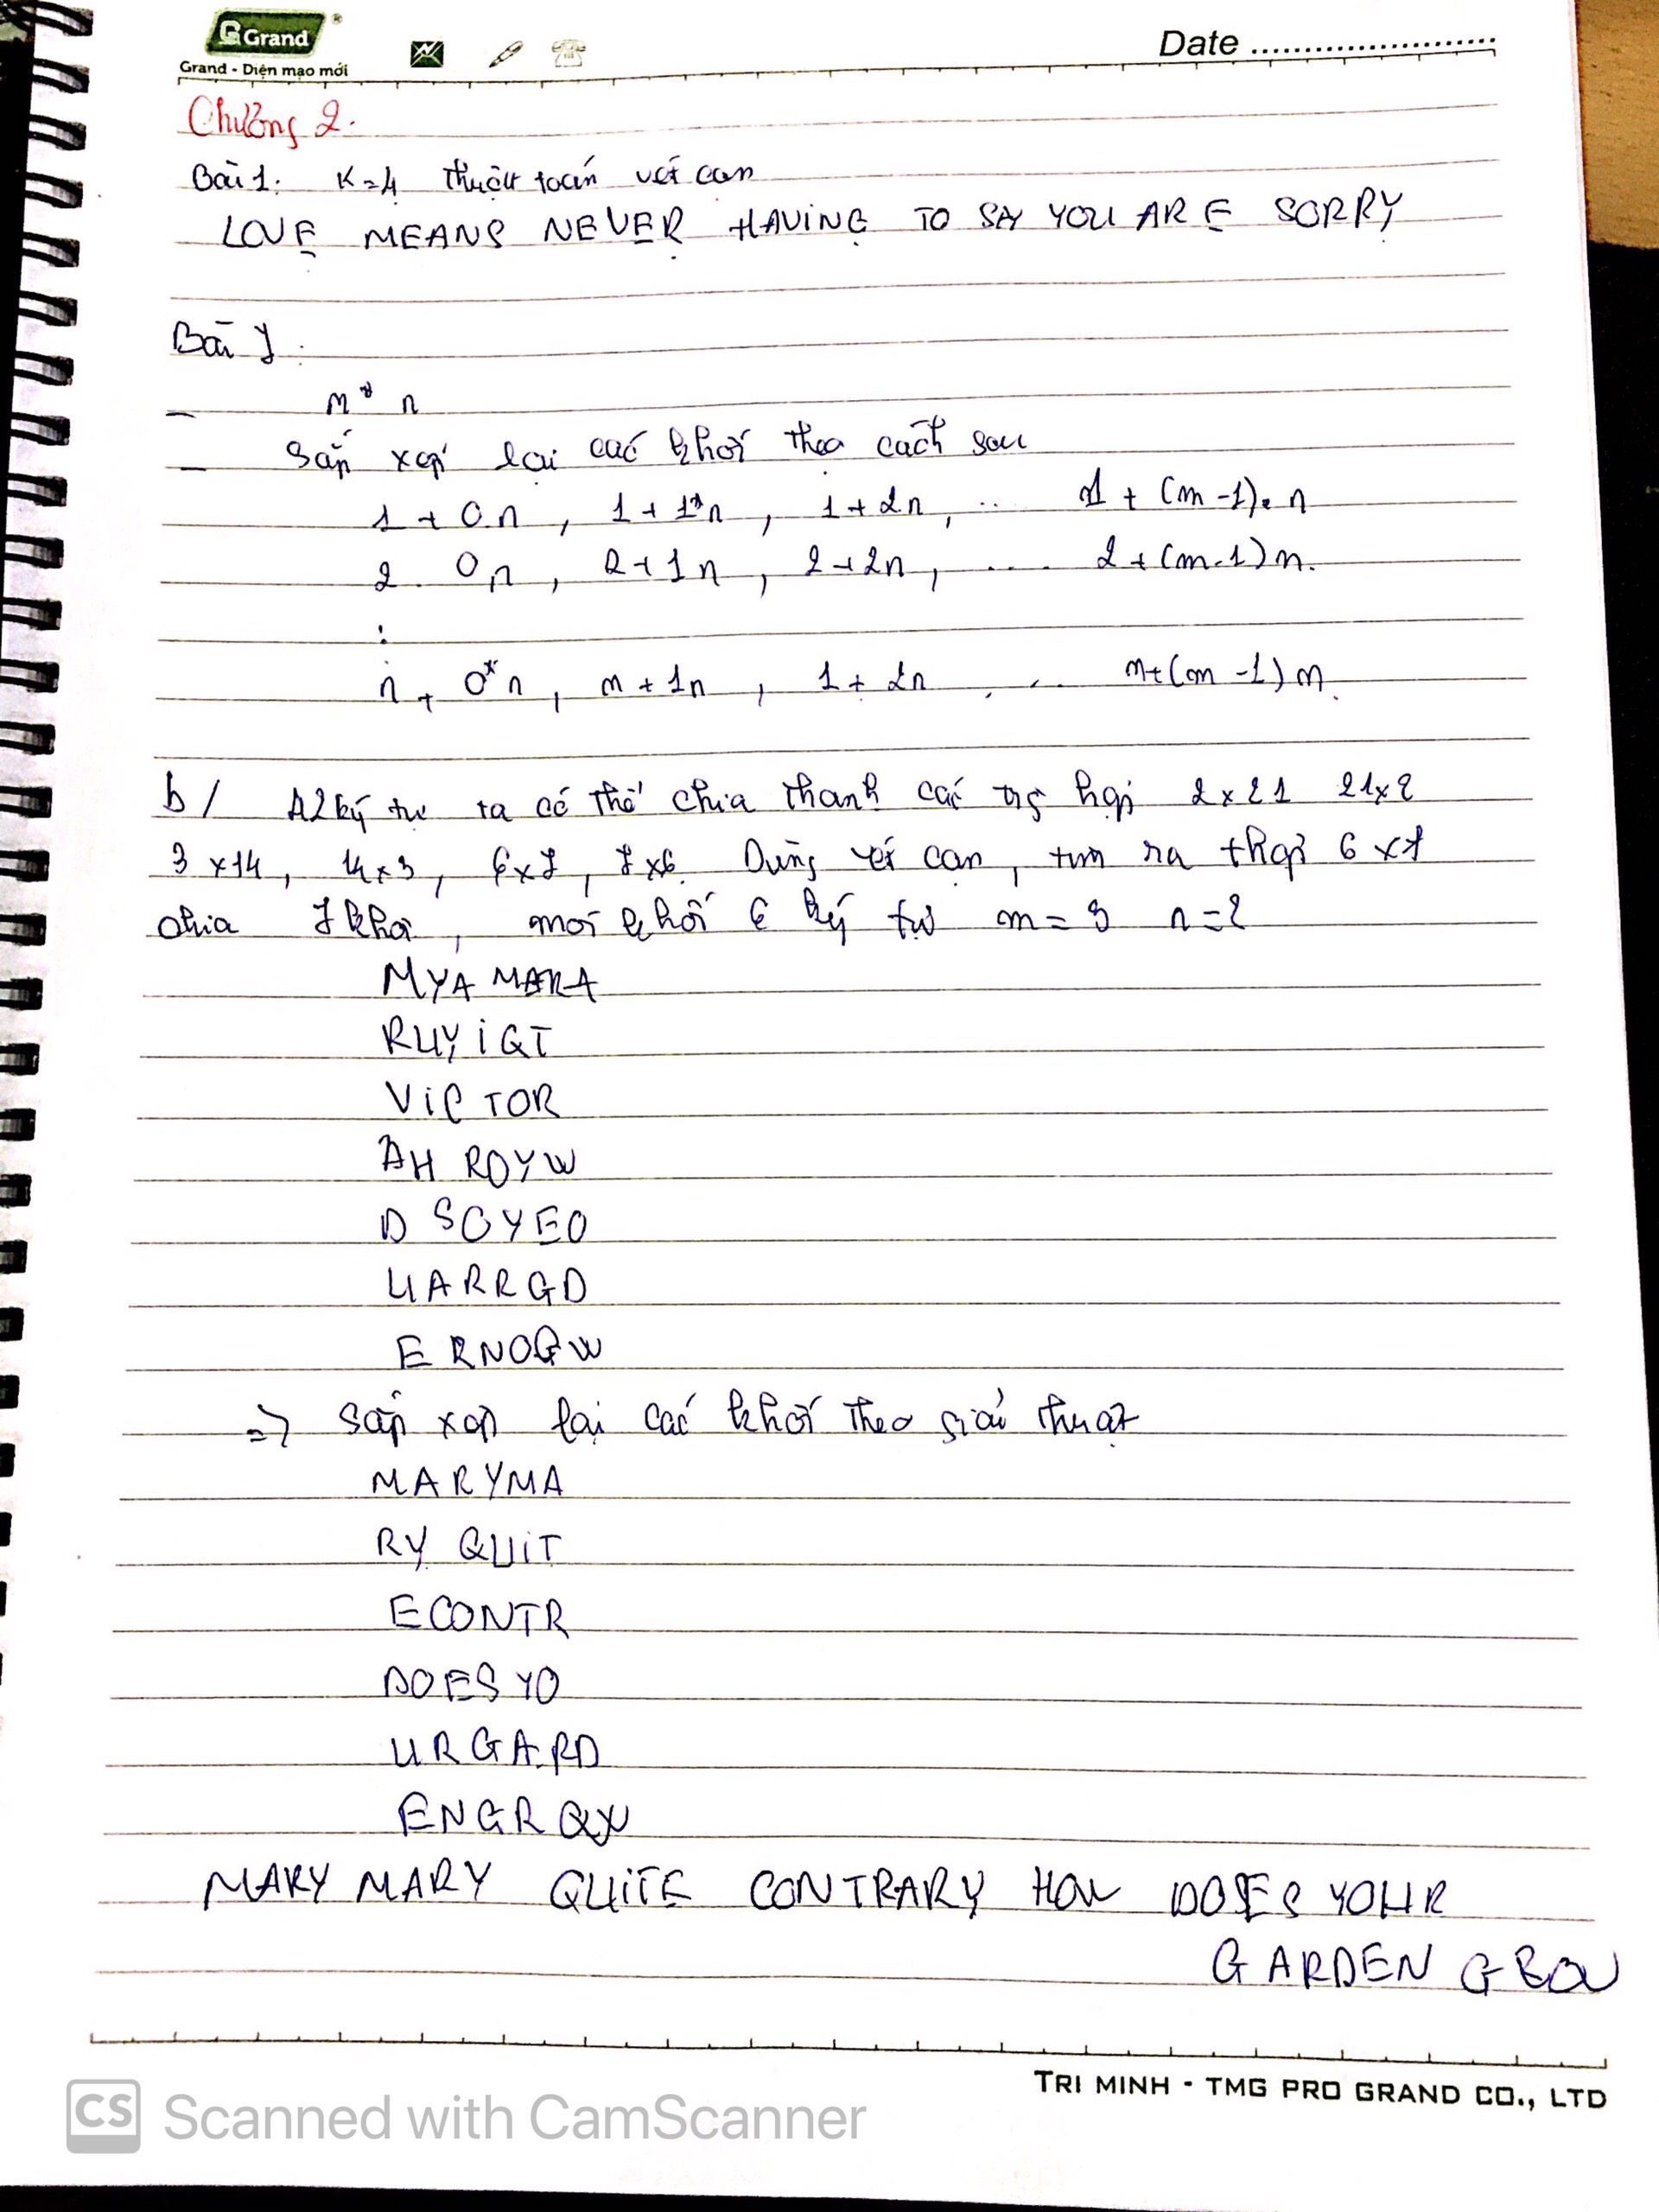 Grand
Grand - Diện mạo mới
Date
Chương 2.
Bài 1: K=4 Thuật toán vét cạn
LOVE MEANS NEVER HAVING TO SAY YOU ARE SORRY
Bài
m * n
Sắp xếp lại các khối theo cách sau
1 + 0.n , 1 + 1*n , 1 + 2n , ... 1 + (m -1). n
2 0,n , 2+1n , 2+2n , .... 2 + (m-1)n.
:
n + 0*n , m + 1n , 1 + 2n , ... m+(m -1)n.
b/ 42 ký tự ta có thể chia thanh các hợp 2 x 21 21x2
3 x14, 14x3, 6x7, 7x6. Dùng vét cạn, tìm ra 6 x7
chia 7 khối, mỗi khối 6 ký tự m = 3 n = 2
MYAMARA
RUYIQT
VICTOR
AH ROYW
D SOYEO
UARRGD
E RNOGW
=> sắp xếp lại các khối theo giải thuật
MARYMA
RY QUIT
ECONTR
DOESYO
URGARD
ENGROW
MARY MARY QUITE CONTRARY HOW DOES YOUR
GARDEN GROW
TRI MINH - TMG PRO GRAND CO., LTD
CS Scanned with CamScanner